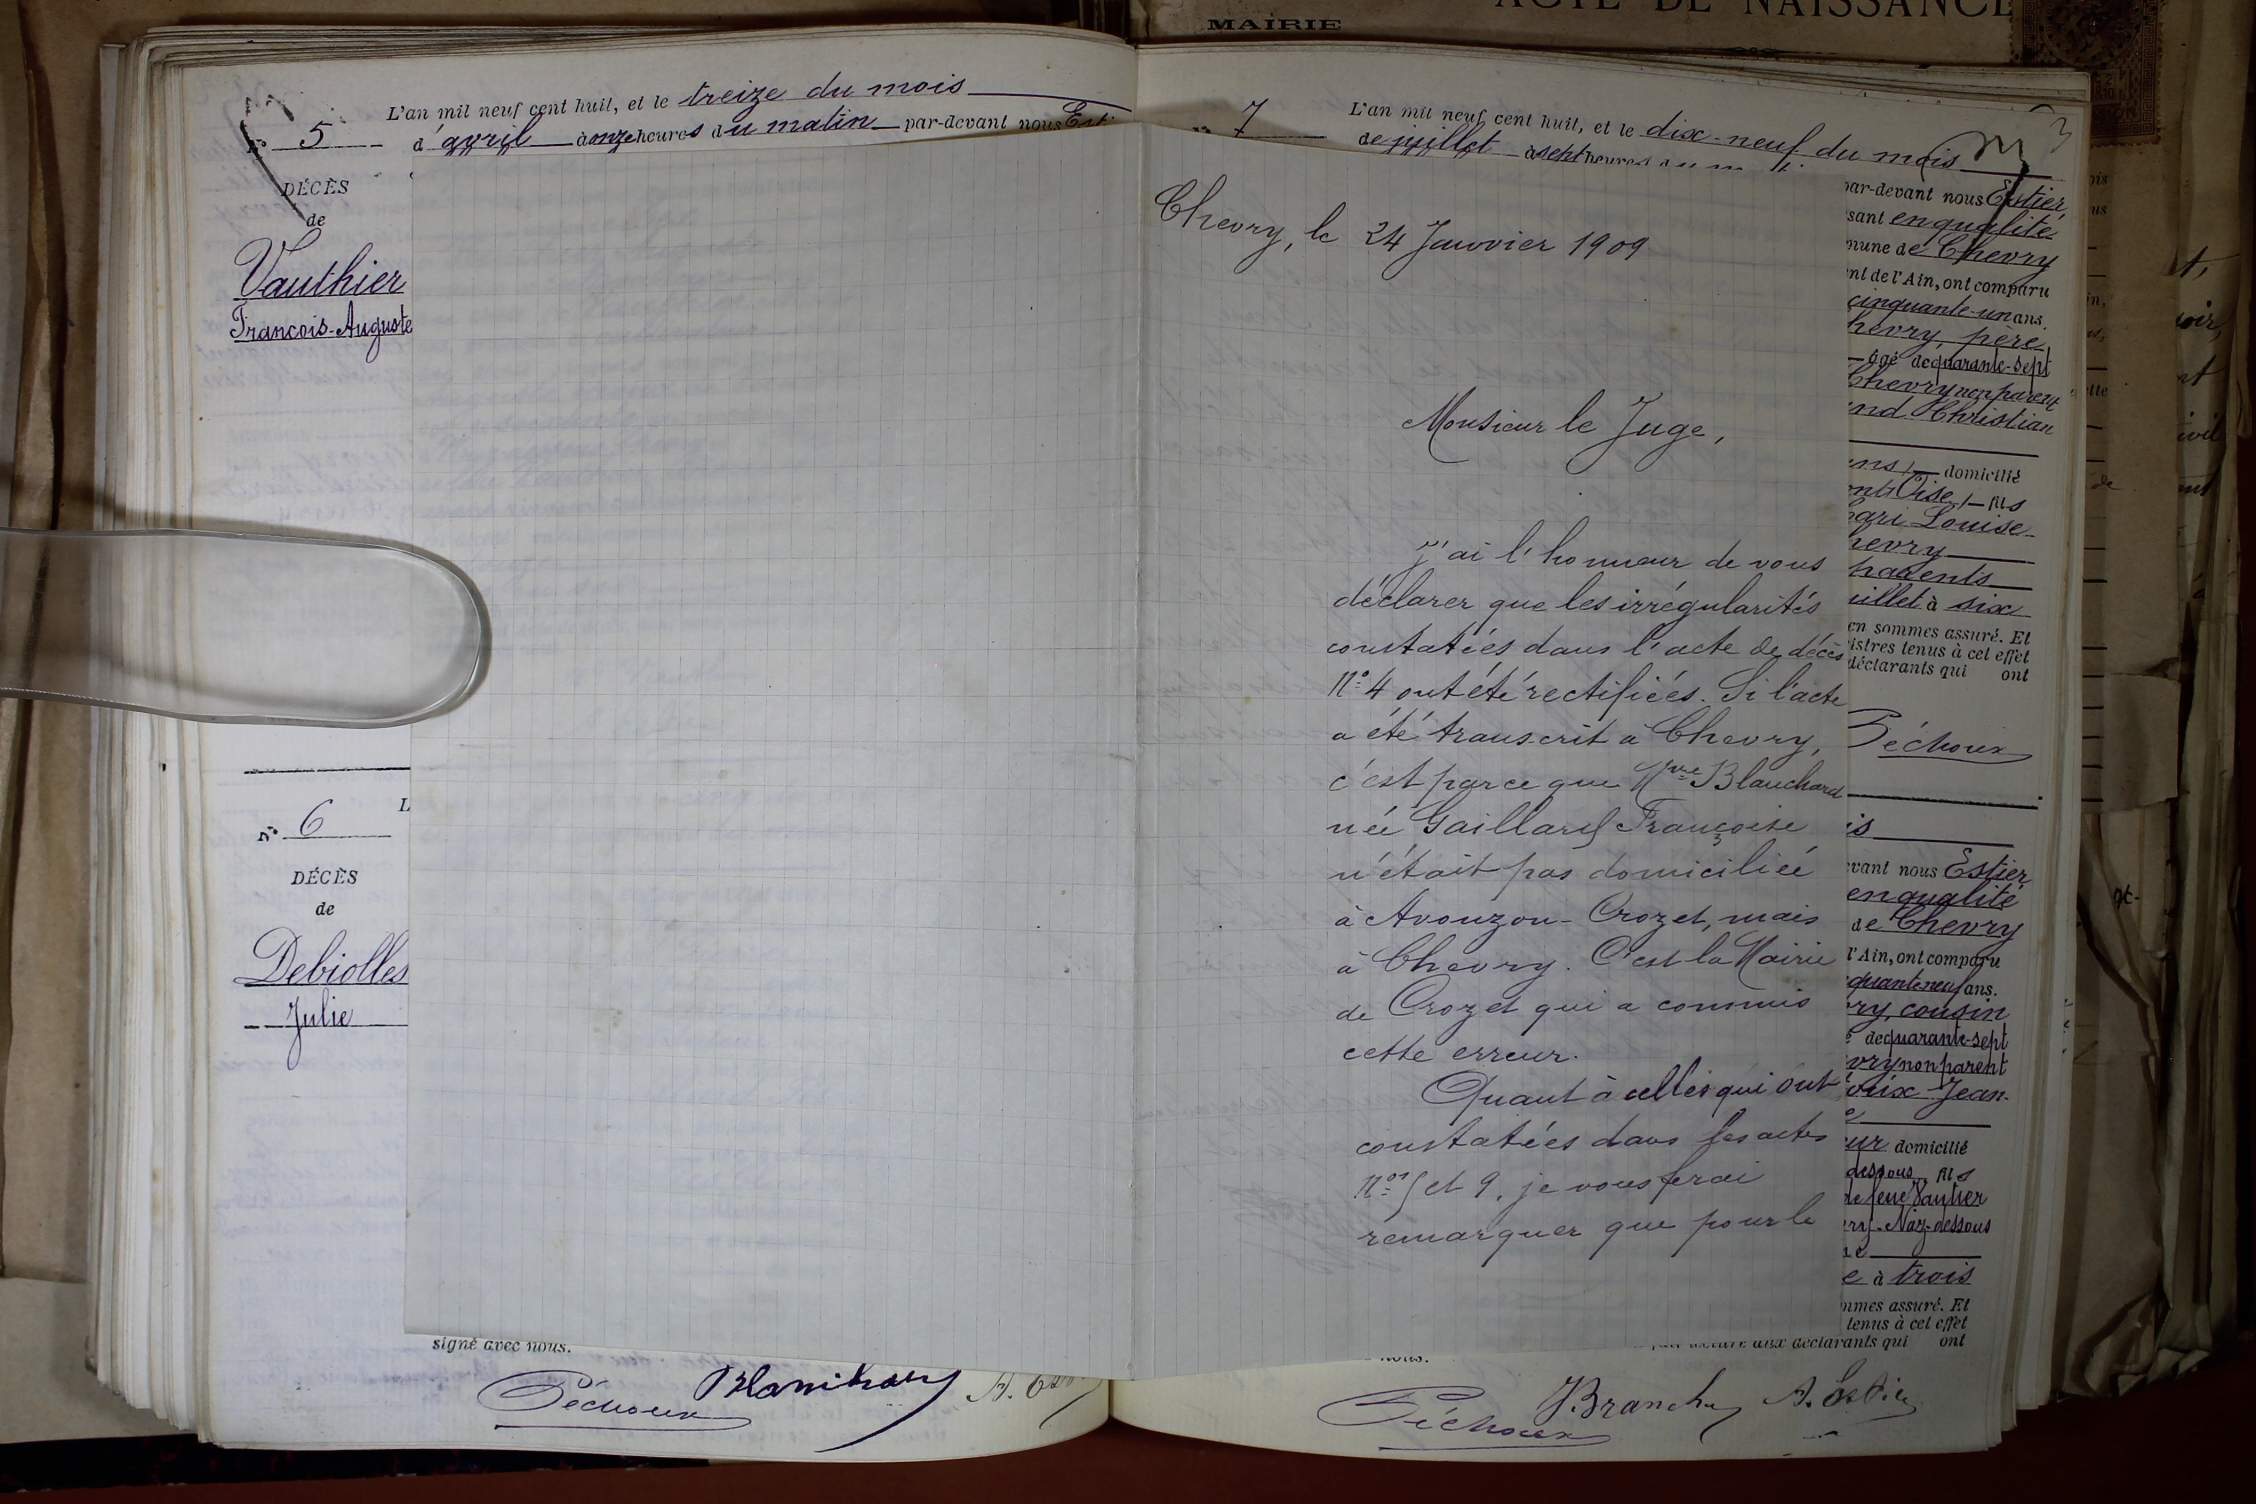 MAIRIE
ACTE DE NAISSANCE
L'an mil neuf cent huit, et le treize du mois
d'avril à onze heures du matin par-devant nous Esti
N° 5
DÉCÈS
de
Vauthier
François-Auguste
N° 6
L
DÉCÈS
de
Debiolles
Julie
signé avec nous.
Péchoux
Blanchard
N° 7
L'an mil neuf cent huit, et le dix-neuf du mois
de juillet à sept heures du
Chevry, le 24 Janvier 1909
Monsieur le Juge,
J'ai l'honneur de vous
déclarer que les irrégularités
constatées dans l'acte de décès
N° 4 ont été rectifiées. Si l'acte
a été transcrit à Chevry,
c'est parce que Mme Blanchard
née Gaillard Françoise
n'était pas domiciliée
à Avouzon-Crozet, mais
à Chevry. C'est la Mairie
de Crozet qui a commis
cette erreur.
Quant à celles qui ont
constatées dans les actes
Nos 5 et 9, je vous ferai
remarquer que pour le
par-devant nous Estier
sant en qualité
mune de Chevry
nt de l'Ain, ont comparu
cinquante-un ans.
hevry, père
âgé de quarante-sept
Chevry non parent
and Christian
ans, domicilié
Oise, fils
Louise
hevry
parents
uillet à six
en sommes assuré. Et
istres tenus à cet effet
déclarants qui ont
Péchoux
is
evant nous Estier
en qualité
de Chevry
l'Ain, ont comparu
quante neuf ans.
ry, cousin
de quarante-sept
vry non parent
oux Jean-
eur domicilié
dessous, fils
de feue Vautier
ry-Naz-dessous
ne
e à trois
mmes assuré. Et
tenus à cet effet
aux déclarants qui ont
nous.
Péchoux
J. Branch
A. Estier